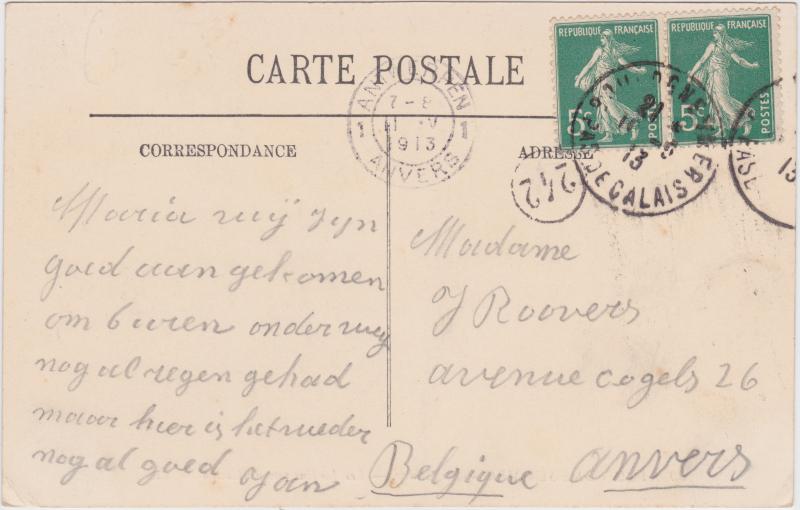 CARTE POSTALE
CORRESPONDANCE
ADRESSE
REPUBLIQUE FRANÇAISE
5c
POSTES
REPUBLIQUE FRANÇAISE
5c
POSTES
ANTWERPEN
7-8
1 11 V 1
1913
ANVERS
242
PAS DE CALAIS
13
Maria wij zyn
goed aan gekomen
om 6 uren onderweg
nog al regen gehad
maar hier is het weder
nog al goed Jan
Madame
J Roovers
avenue cogels 26
Belgique anvers